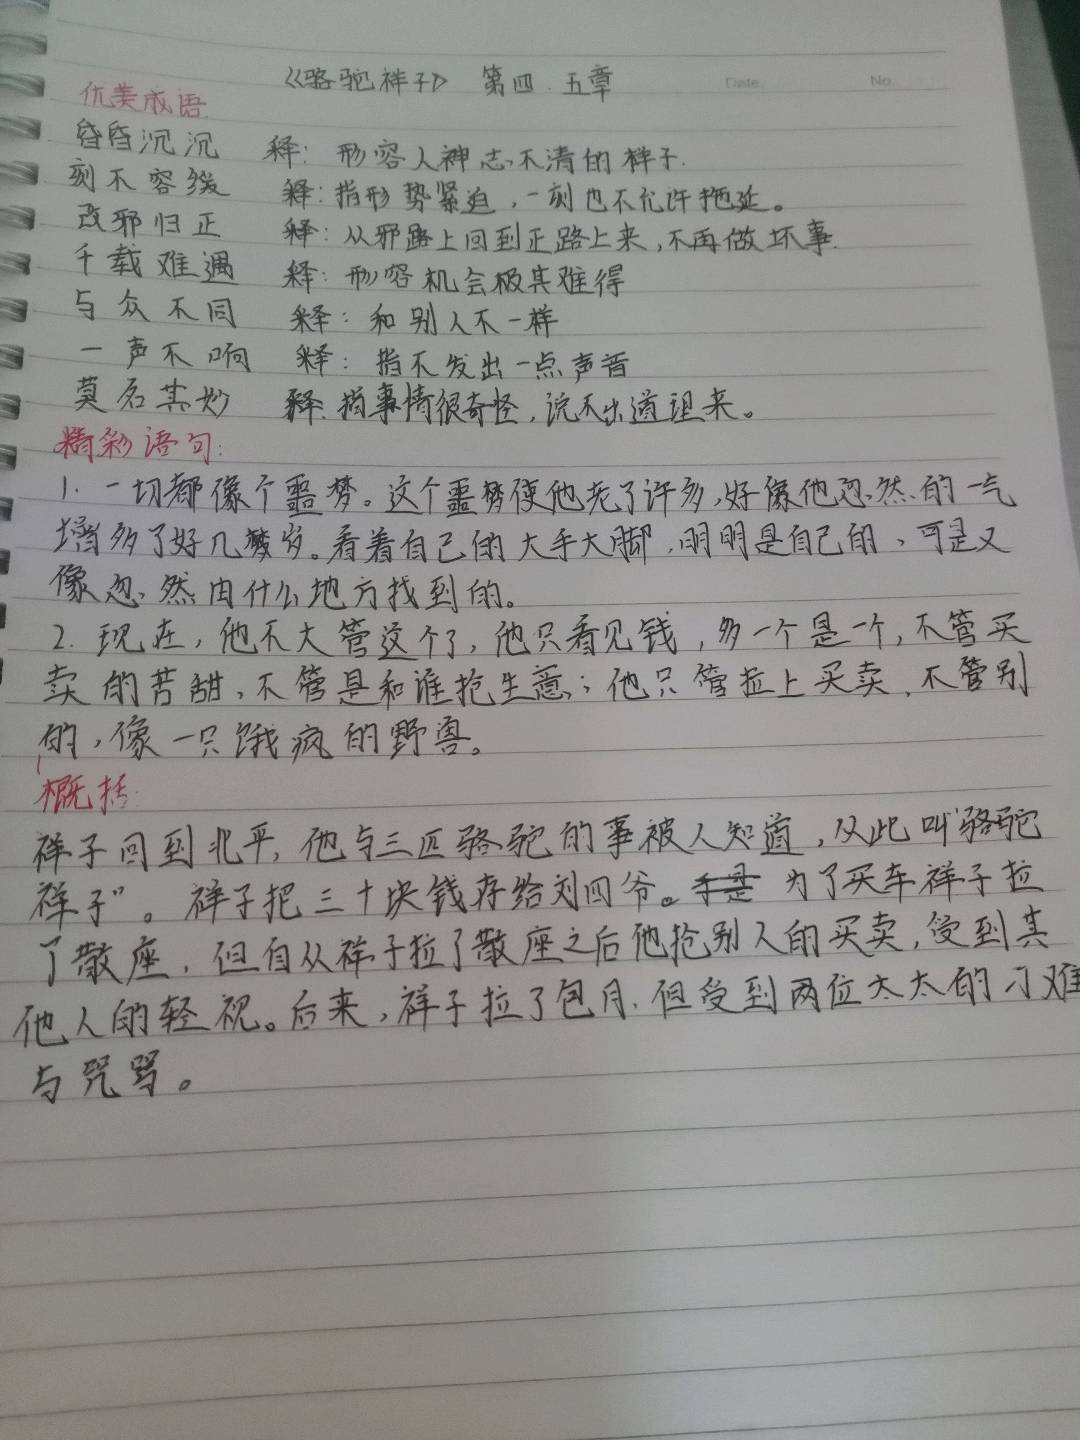 《骆驼祥子》 第四.五章
Date. No.
优美成语
昏昏沉沉 释：形容人神志不清的样子.
刻不容缓 释：指形势紧迍，一刻也不允许拖延。
改邪归正 释：从邪路上回到正路上来，不再做坏事.
千载难遇 释：形容机会极其难得
与众不同 释：和别人不一样
一声不响 释：指不发出一点声音
莫名其妙 释.指事情很奇怪，说不出道理来。
精彩语句：
1. 一切都像个噩梦。这个噩梦使他老了许多，好像他忽然的一气
增多了好几岁。看着自己的大手大脚，明明是自己的，可是又
像忽然由什么地方找到的。
2. 现在，他不大管这个了，他只看见钱，多一个是一个，不管买
卖的苦甜，不管是和谁抢生意；他只管拉上买卖，不管别
的，像一只饿疯的野兽。
概括:
祥子回到北平，他与三匹骆驼的事被人知道，从此叫“骆驼
祥子”。祥子把三十块钱存给刘四爷。为了买车祥子拉
了散座，但自从祥子拉了散座之后他抢别人的买卖，受到其
他人的轻视。后来，祥子拉了包月.但受到两位太太的刁难
与咒骂。